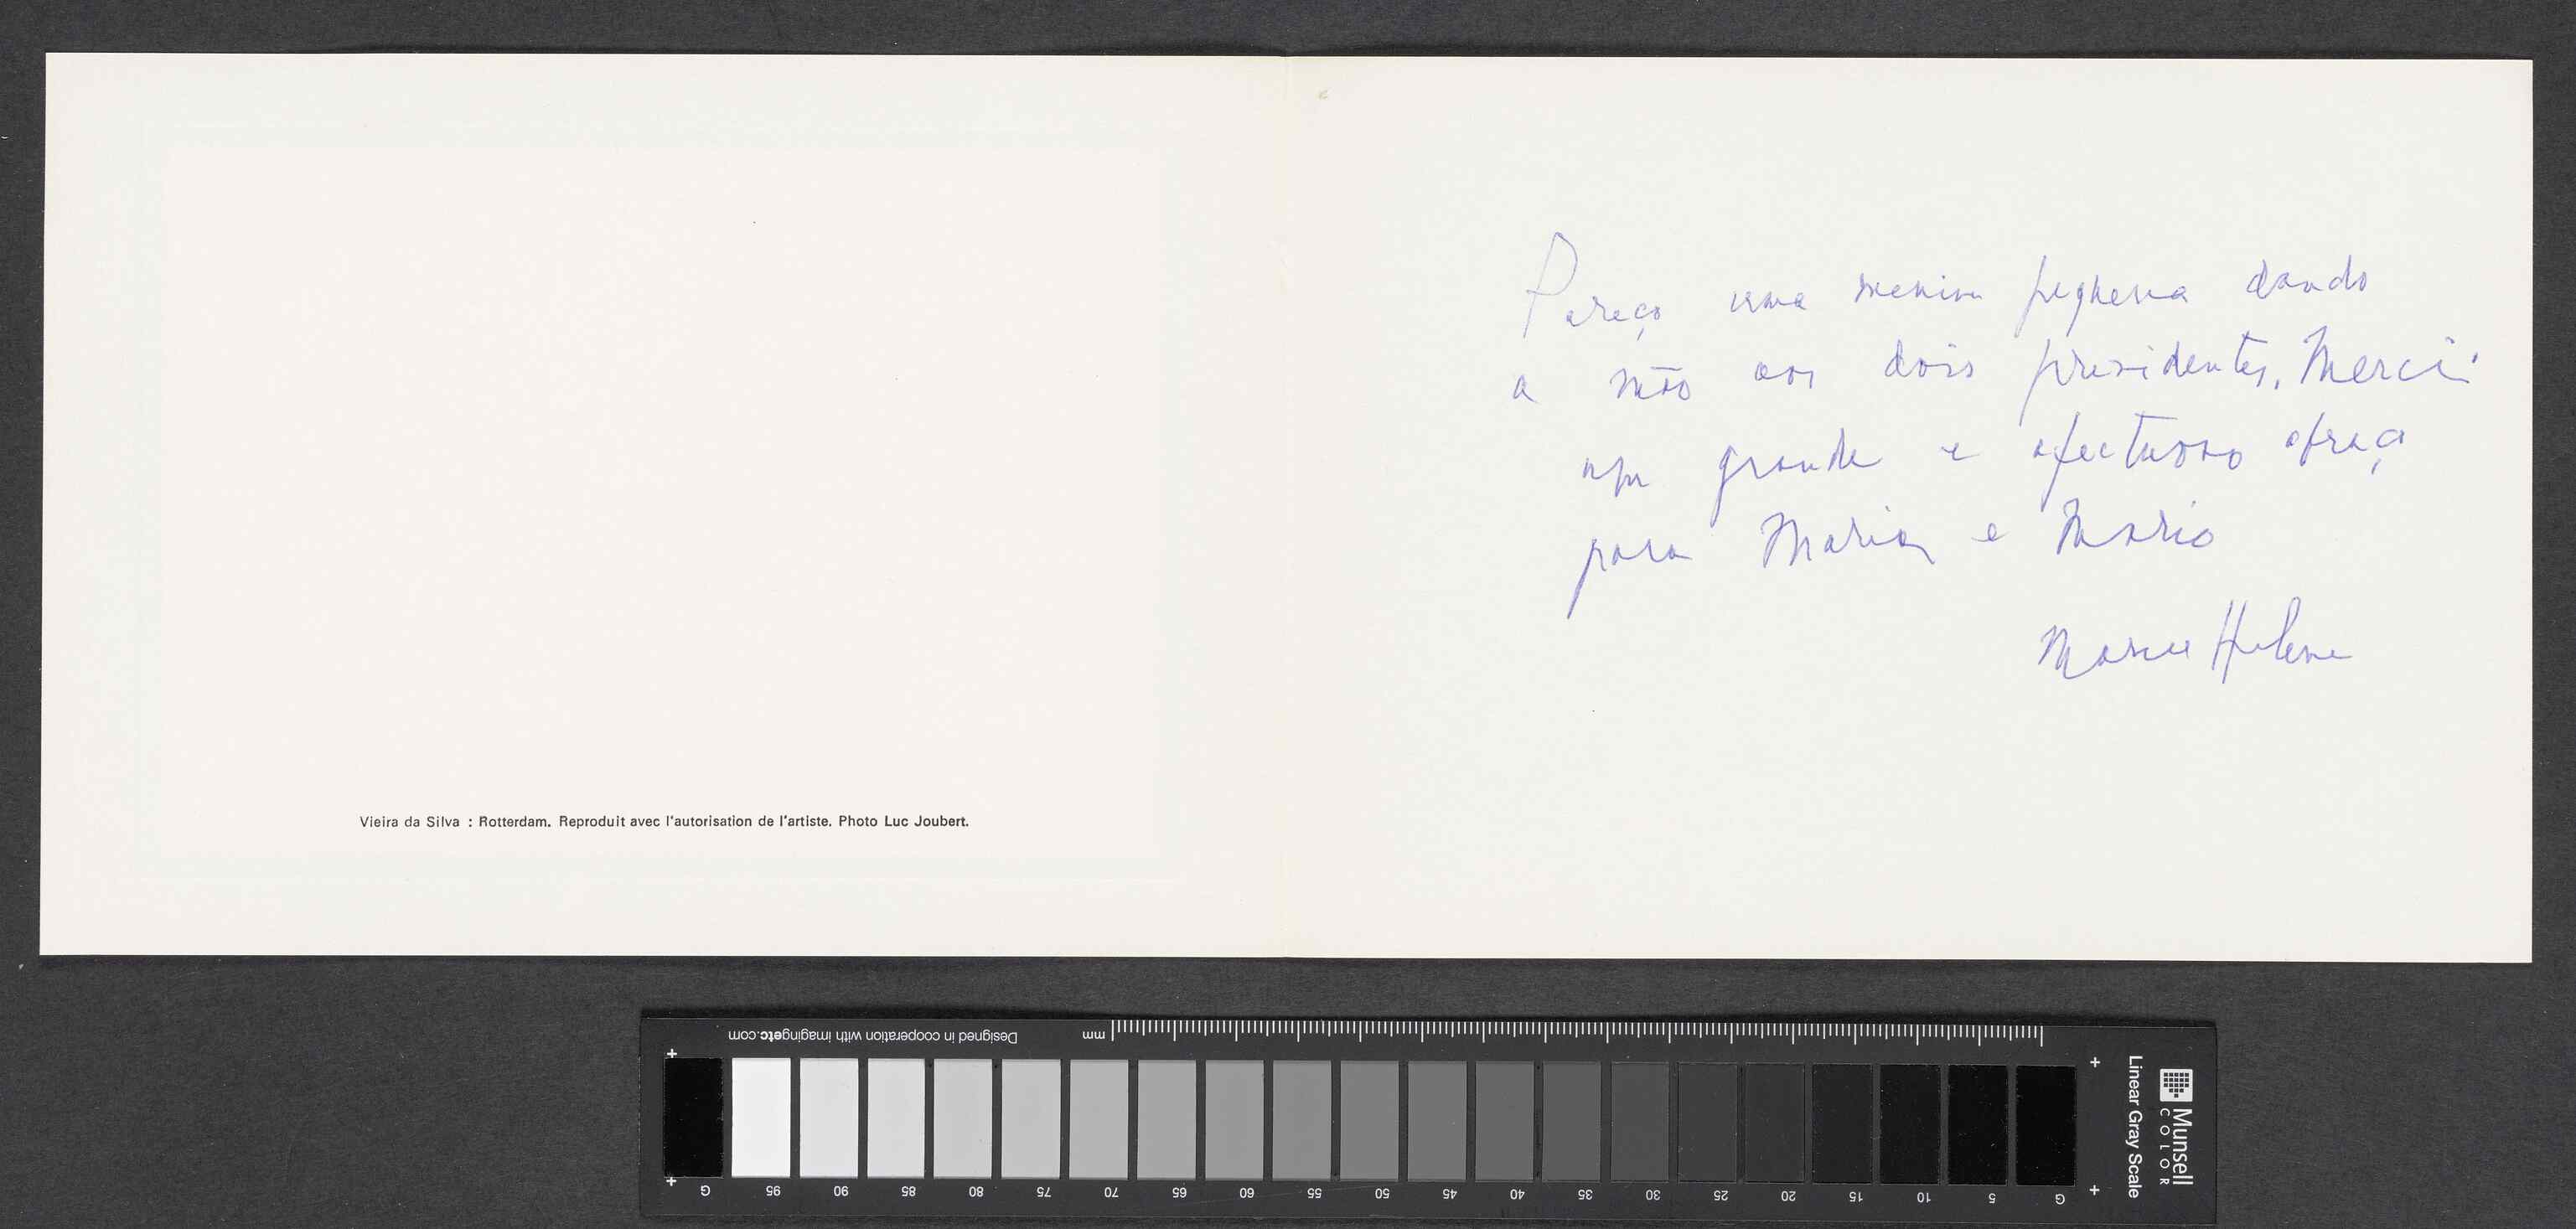 Vieira da Silva : Rotterdam. Reproduit avec l'autorisation de l'artiste. Photo Luc Joubert.
Pareço uma menina pequena dando
a mão aos dois presidentes. Merci!
um grande e afectuoso abraço
para Maria e Mario
Maria Helena
Designed in cooperation with imagingetc.com
mm
G 95 90 85 80 75 70 65 60 55 50 45 40 35 30 25 20 15 10 5 G
Munsell
COLOR
Linear Gray Scale